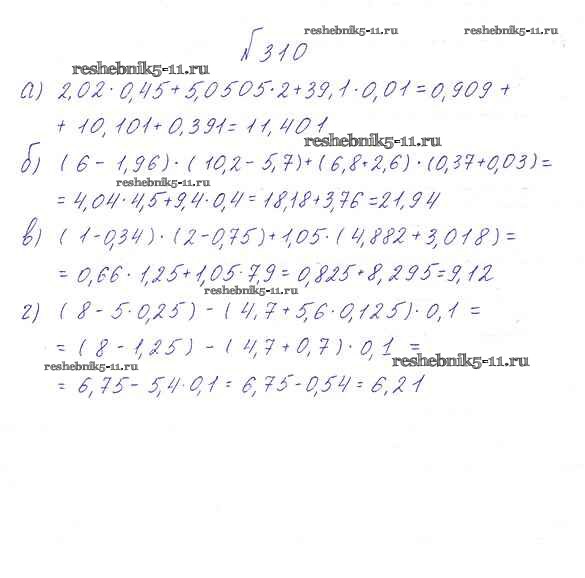 reshebnik5-11.ru
reshebnik5-11.ru
№310
reshebnik5-11.ru
а) 2,02·0,45+5,0505·2+39,1·0,01=0,909+
+10,101+0,391=11,401
reshebnik5-11.ru
б) (6-1,96)·(10,2-5,7)+(6,8+2,6)·(0,37+0,03)=
reshebnik5-11.ru
=4,04·4,5+9,4·0,4=18,18+3,76=21,94
в) (1-0,34)·(2-0,75)+1,05·(4,882+3,018)=
=0,66·1,25+1,05·7,9=0,825+8,295=9,12
reshebnik5-11.ru
г) (8-5·0,25)-(4,7+5,6·0,125)·0,1=
=(8-1,25)-(4,7+0,7)·0,1=
reshebnik5-11.ru
reshebnik5-11.ru
=6,75-5,4·0,1=6,75-0,54=6,21